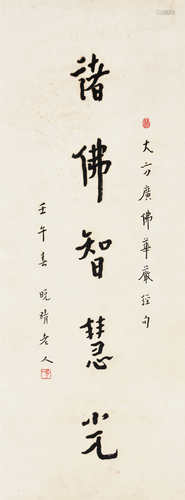 大方廣佛華嚴經句
諸佛智慧光
壬午春晚晴老人